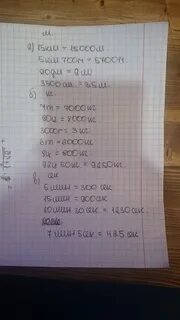 м.
а) 15км = 15000м.
5км 700м = 5700м.
90дм = 9м
3500см = 35м.
б) кг.
7т = 7000кг
80ц = 8000кг
3000г = 3 кг
8т = 8000кг
8ц = 800кг
92ц 50кг = 9250кг
в) сек
5мин = 300 сек
15мин = 900сек
20мин 30сек = 1230 сек.
7 мин 5сек = 425 сек